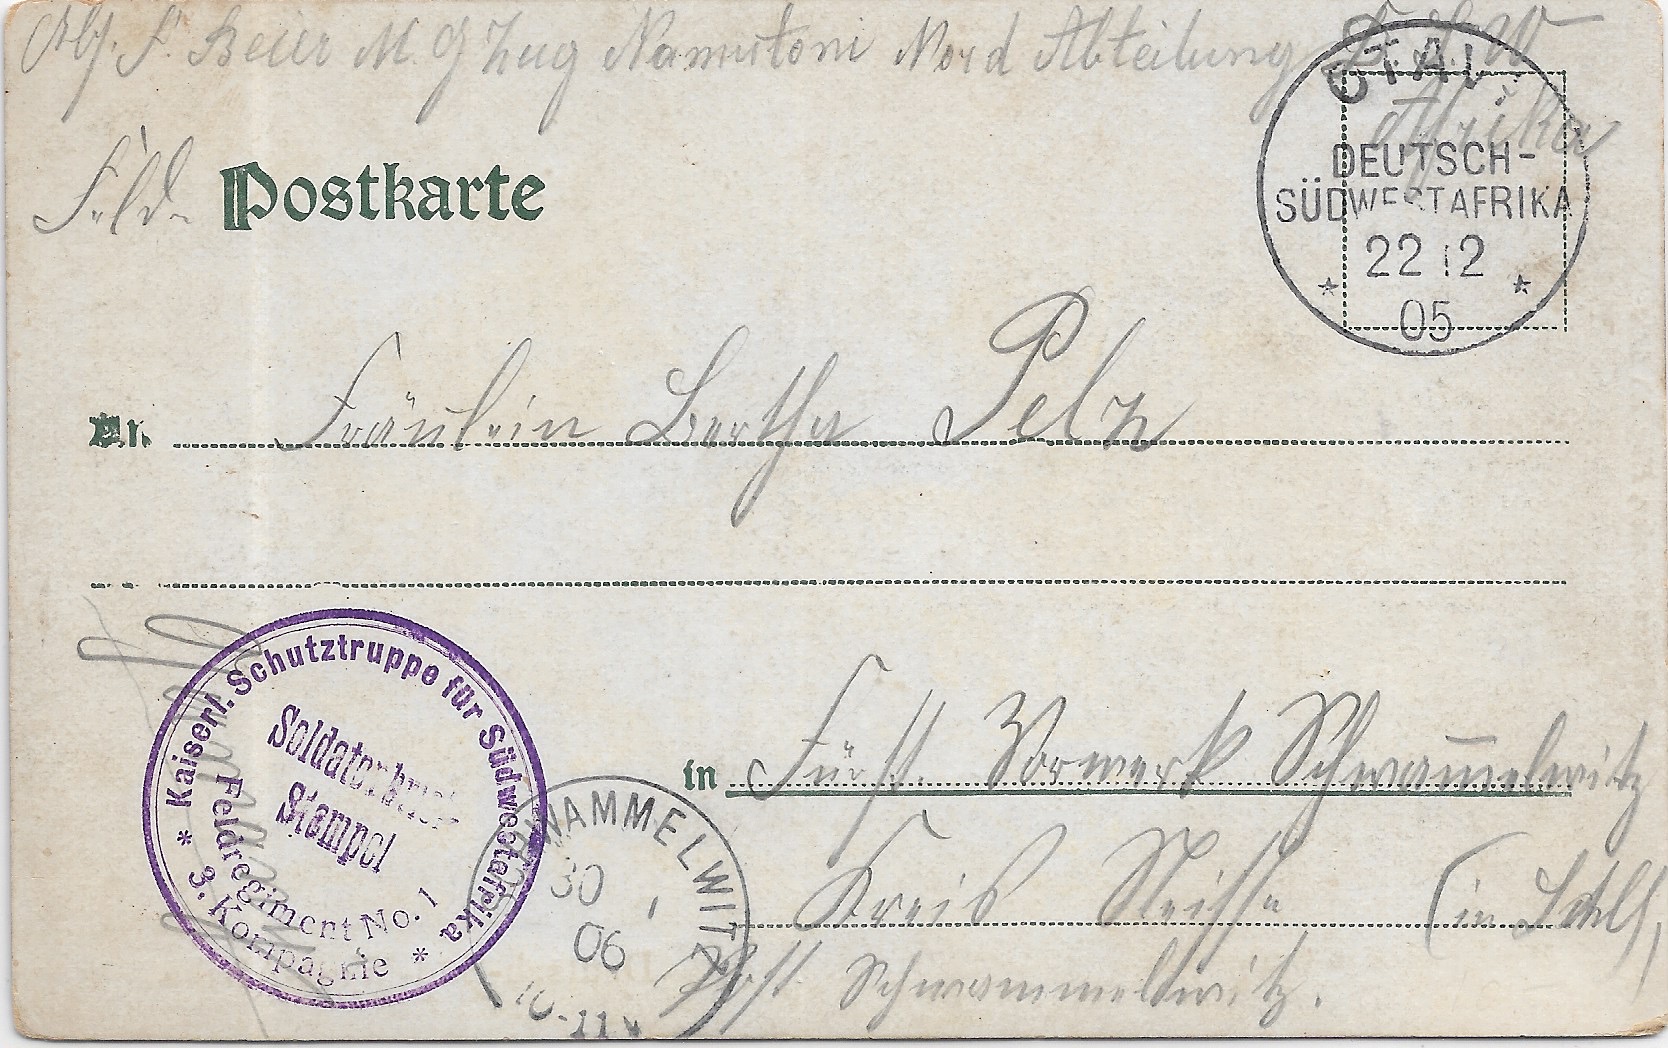 Abs. F. Beier M. G Zug Namutoni Nord Abteilung D. S. W
Afrika
Feld-
Postkarte
OTAVI
DEUTSCH-
SÜDWESTAFRIKA
22 12
05
An
Fräulein Bertha Pelz
in
Fürst. Vorwerk Schwammelwitz
Kreis Neisse (in Schls.)
Post Schwammelwitz.
* Kaiserl. Schutztruppe für Südwestafrika *
Soldatenbrief
Stempel
Feldregiment No. 1
3. Kompagnie
SCHWAMMELWITZ
30 1
06
10-11V